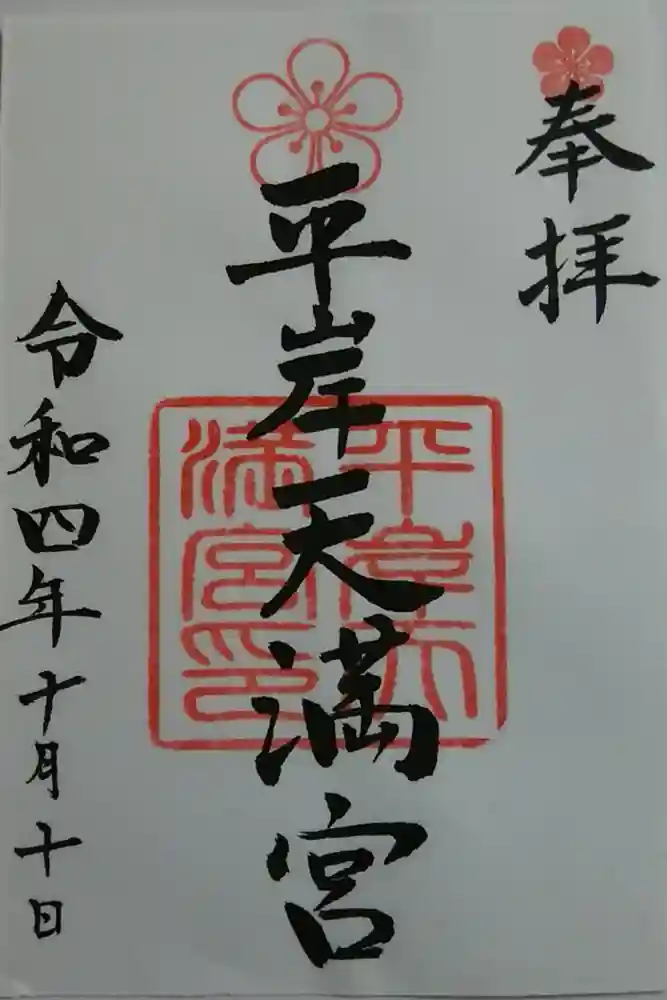 奉拝
平岸天満宮
平岸天満宮印
令和四年十月十日